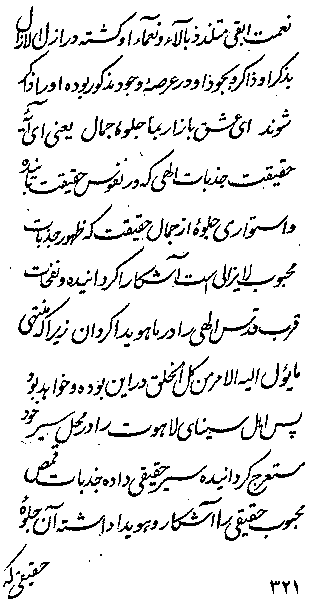 نعمت ابقی متلذذ بالآء و نعمآء او گشته در ازل الازل
بذکر او ذاکر و بجود او در عرصهٔ وجود مذکور بوده او را ذاکر
شوند ای عشق بازار بها جلوهٔ جمال یعنی ای آیه
حقیقت جذبات الهی که در نفوس حقیقت تابنده
و استواری جلوهٔ از جمال حقیقت که ظهور جذبات
محبوب لایزالی است آشکارا گردانیده و نفحات
قرب قدس الهی را در ما هویدا گردان زیرا که منتهی
مایؤل الیه الامر من کل الخلق در این بوده و خواهد بود
پس اهل سینای لاهوت را در محل سیر خود
مستعرج گردانیده سیر حقیقی داده جذبات قمص
محبوب حقیقی را آشکار و هویدا داشته آن جلوهٔ
حقیقی که
۳۲۱